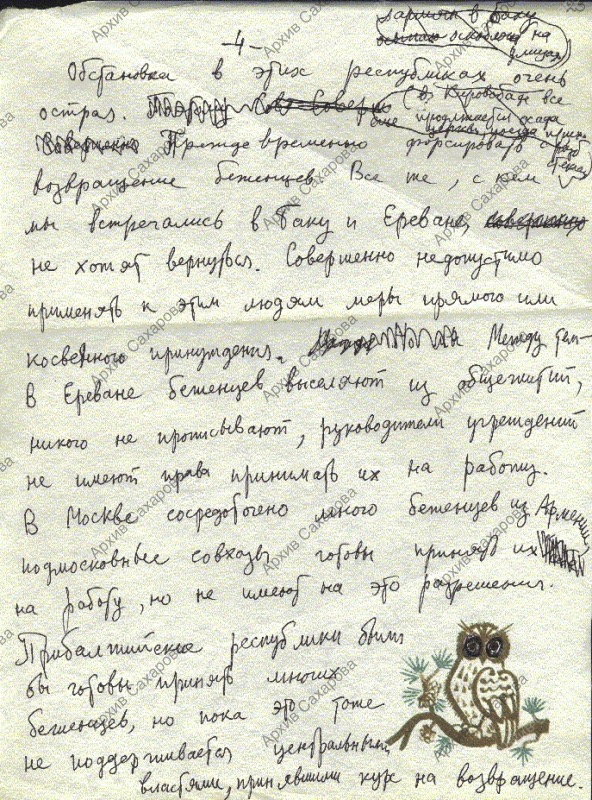 в Баку
на
улицах
-4-
Обстановка в этих республиках очень
острая. (В Кировабаде все
еще продолжается осада
церкви
Преждевременно форсировать
возвращение беженцев. Все те, с кем
мы встречались в Баку и Ереване, совершенно
не хотят вернуться. Совершенно недопустимо
применять к этим людям меры прямого или
косвенного принуждения. Между тем
В Ереване беженцев выселяют из общежитий,
никого не прописывают, руководители учреждений
не имеют права принимать их на работу.
В Москве сосредоточено много беженцев из Армении,
подмосковные совхозы готовы принять их
на работу, но не имеют на это разрешения.
Прибалтийские республики были
бы готовы принять многих
беженцев, но пока это тоже
не поддерживается центральными
властями, принявшими курс на возвращение.
Архив Сахарова